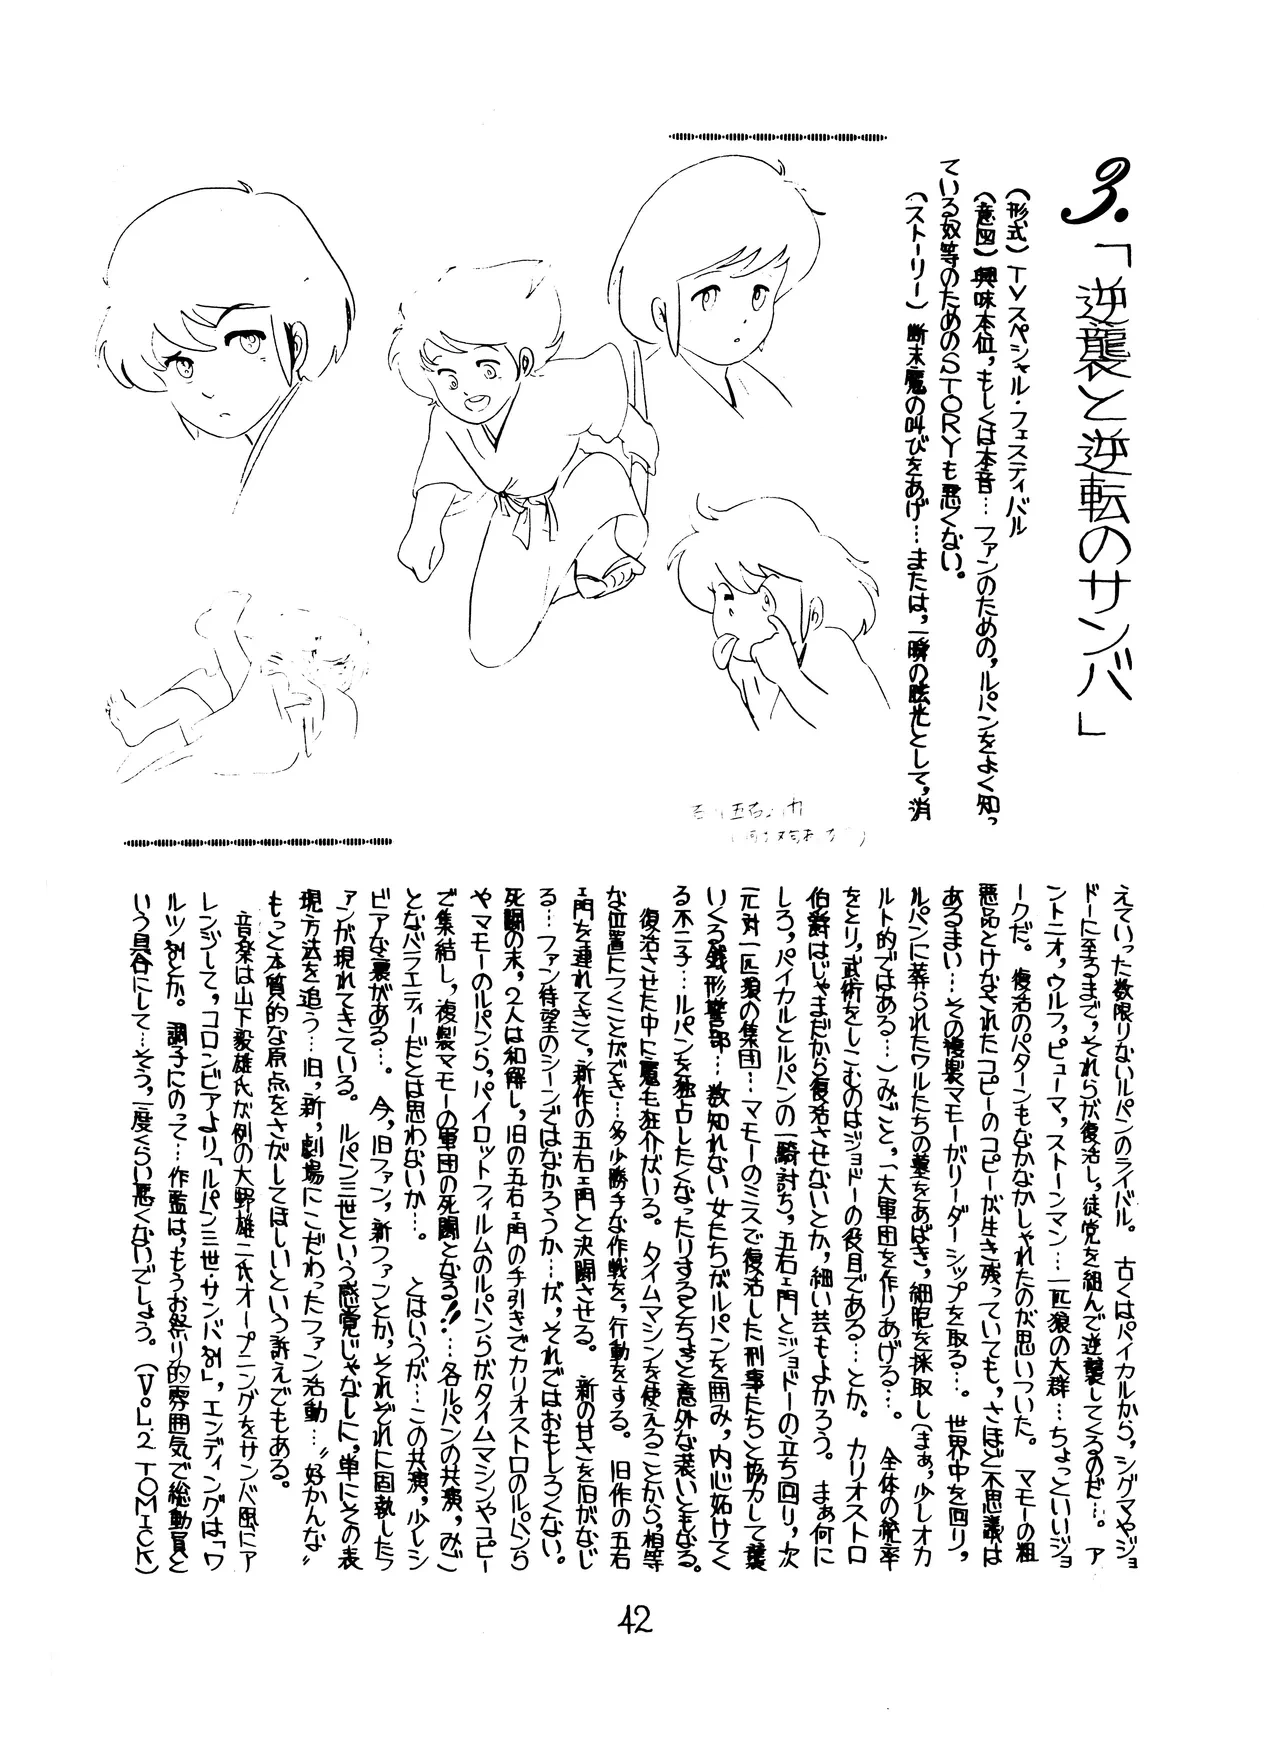 3.「逆襲と逆転のサンバ」
(形式)TVスペシャル・フェスティバル
(意図)興味本位,もしくは本音…ファンのための,ルパンをよく知っ
ている奴等のためのSTORYも悪くない。
(ストーリー)断末魔の叫びをあげ…または,一瞬の眩光として,消
えていった数限りないルパンのライバル。古くはパイカルから,シグマやジョ
ドーに至るまで,それらが復活し,徒党を組んで逆襲してくるのだ…。ア
ントニオ,ウルフ,ピューマ,ストーンマン…一匹狼の大群…ちょっといいジョ
ークだ。復活のパターンもなかなかしゃれたのが思いついた。マモーの粗
悪品とけなされたコピーのコピーが生き残っていても,さほど不思議は
あるまい…その複製マモーがリーダーシップを取る…。世界中を回り,
ルパンに葬られたワルたちの墓をあばき,細胞を採取し(まぁ,少しオカ
ルト的ではある…)みごと,一大軍団を作りあげる…。全体の統率
をとり,武術をしこむのはジョドーの役目である…とか。カリオストロ
伯爵はじゃまだから復活させないとか,細い芸もよかろう。まぁ何に
しろ,パイカルとルパンの一騎討ち,五右ェ門とジョドーの立ち回り,次
元対一匹狼の集団…マモーのミスで復活した刑事たちと協力して襲
いくる銭形警部…数知れない女たちがルパンを囲み,内心妬けてく
る不二子…ルパンを独占したくなったりするとちょっと意外な装いともなる。
復活させた中に魔毛狂介がいる。タイムマシンを使えることから,相等
な位置につくことができ…多少勝手な作戦を,行動をする。旧作の五右
ェ門を連れてきて,新作の五右ェ門と決闘させる。新の甘さを旧がなじ
る…ファン待望のシーンではなかろうか…が,それではおもしろくない。
死闘の末,2人は和解し,旧の五右ェ門の手引きでカリオストロのルパンら
やマモーのルパンら,パイロットフィルムのルパンらがタイムマシンやコピー
で集結し,複製マモーの軍団の死闘となる!!…各ルパンの共演,みご
となバラエティーだとは思わないか…。とはいうが…この共演,少しシ
ビアな裏がある…。今,旧ファン,新ファンとか,それぞれに固執したフ
ァンが現れてきている。ルパン三世という感覚じゃなしに,単にその表
現方法を追う…旧,新,劇場にこだわったファン活動…"好かんな"
もっと本質的な原点をさがしてほしいという訴えでもある。
音楽は山下毅雄氏が例の大野雄二氏オープニングをサンバ風にア
レンジして,コロンビアより「ルパン三世・サンバ'81」,エンディングは「ワ
ルツ'81」とか。調子にのって…作監は,もうお祭り的雰囲気で総動員と
いう具合にして…そう,一度くらい悪くないでしょう。(VOL.2 TOMICK)
42